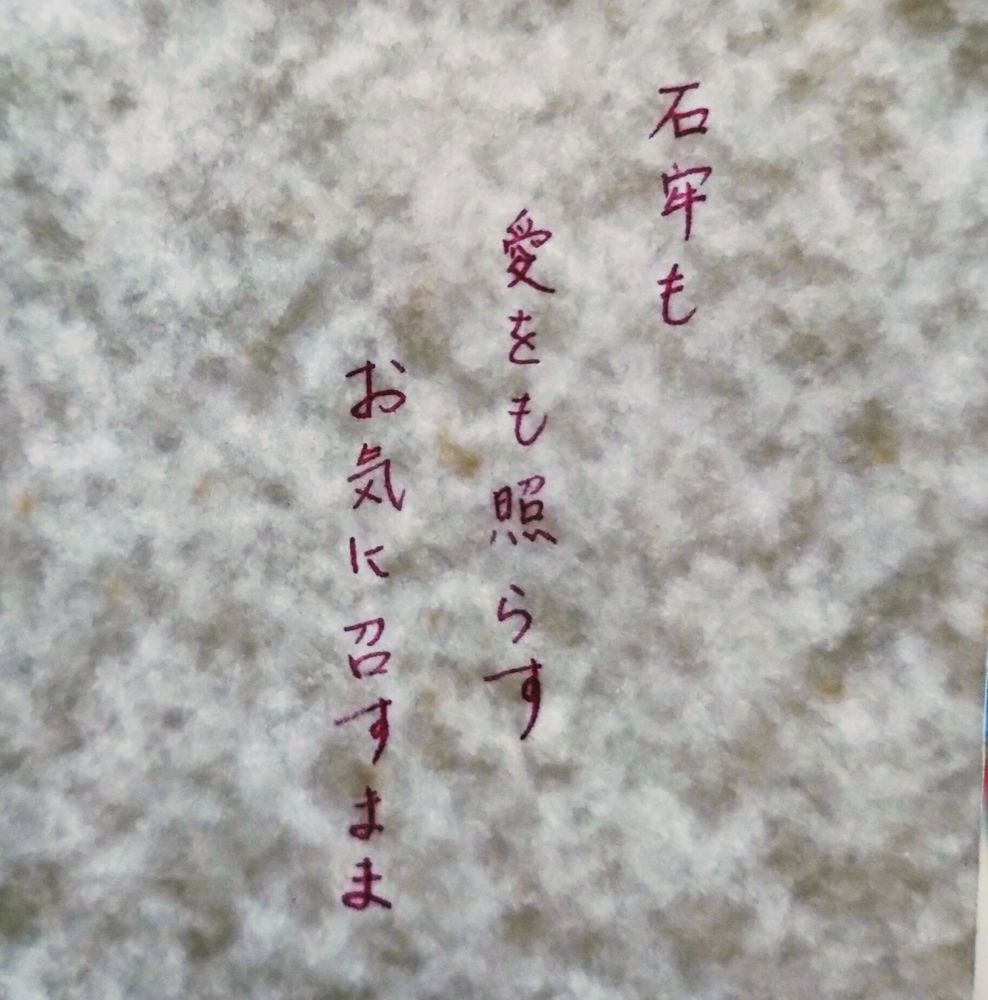 石牢も
愛をも照らす
お気に召すまま